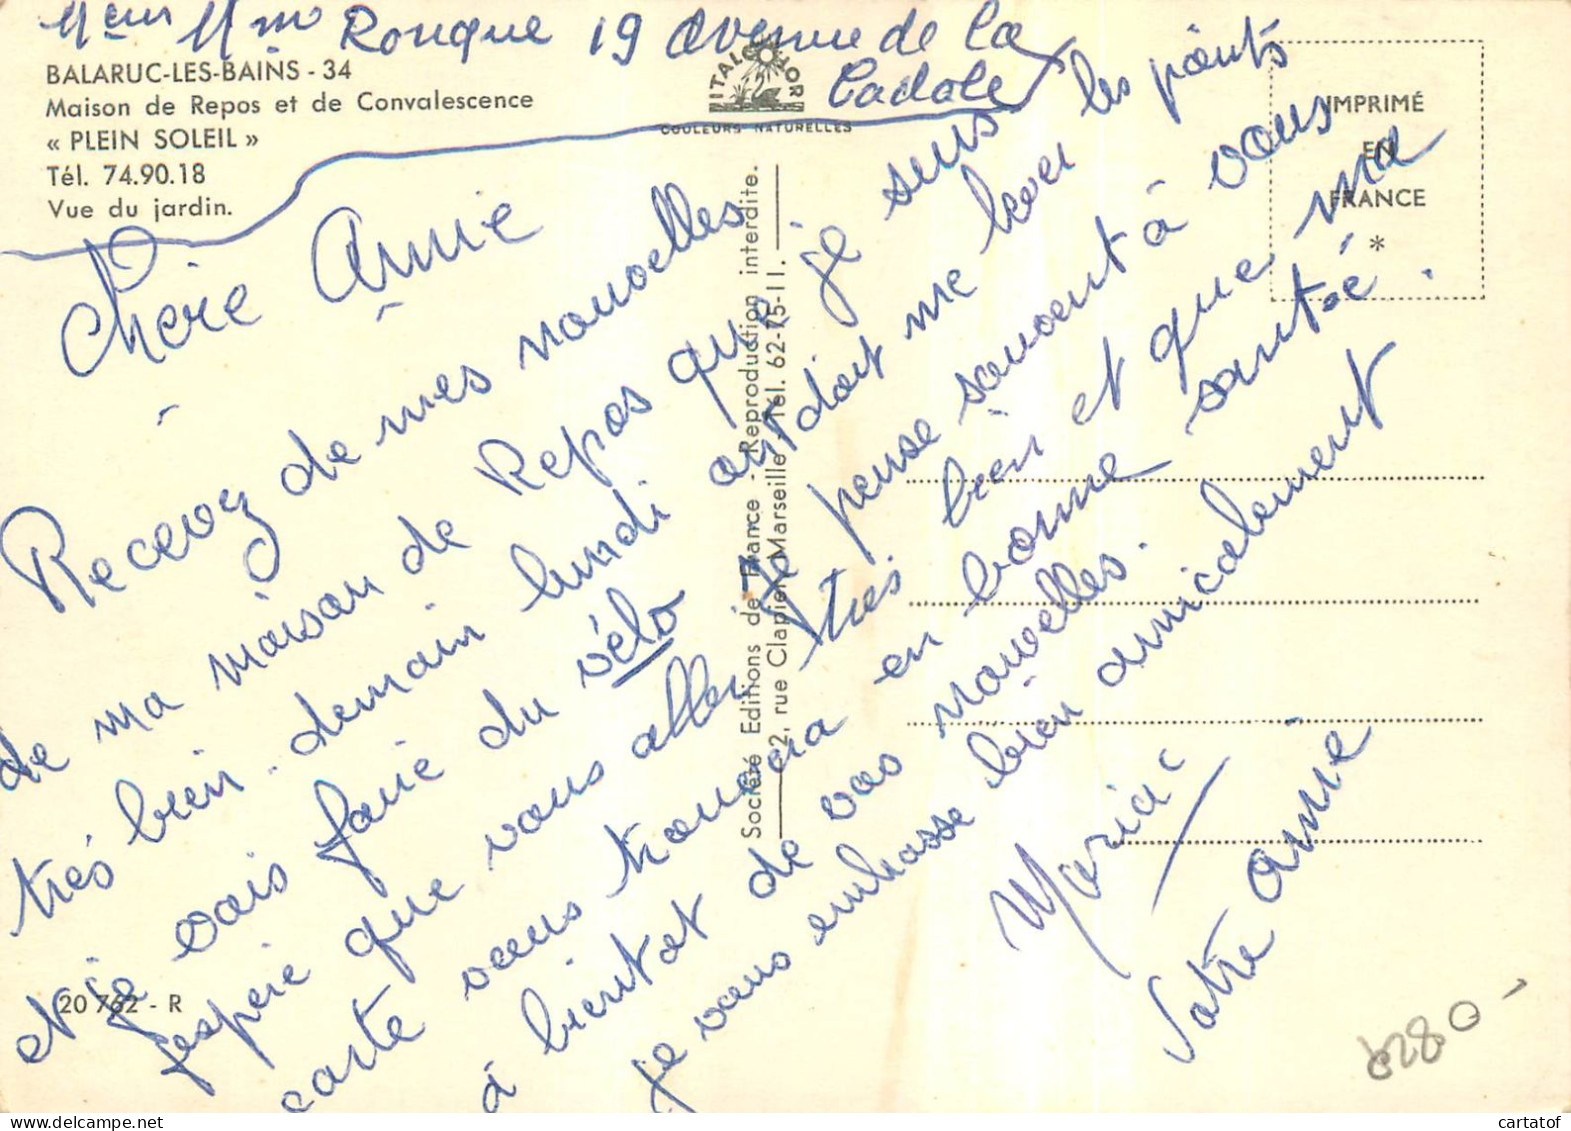 Mme Rouque 19 Avenue de la
Cadole
BALARUC-LES-BAINS - 34
Maison de Repos et de Convalescence
« PLEIN SOLEIL »
Tél. 74.90.18
Vue du jardin.
ITALCOLOR
COULEURS NATURELLES
IMPRIMÉ
EN
FRANCE
*
Chère Annie
Recevez de mes nouvelles
de ma maison de Repos que je suis
très bien. demain lundi on doit me lever les points
et je vais faire du vélo Je pense souvent à vous
j'espère que vous aller très bien et que ma
carte vous trouvera en bonne santée.
à bientot de vos nouvelles.
je vous embrasse bien amicalement
Votre amie
Société Editions de France - Reproduction interdite.
2, rue Clapier - Marseille - Tél. 62-75-11.
20 762 - R
cartatof